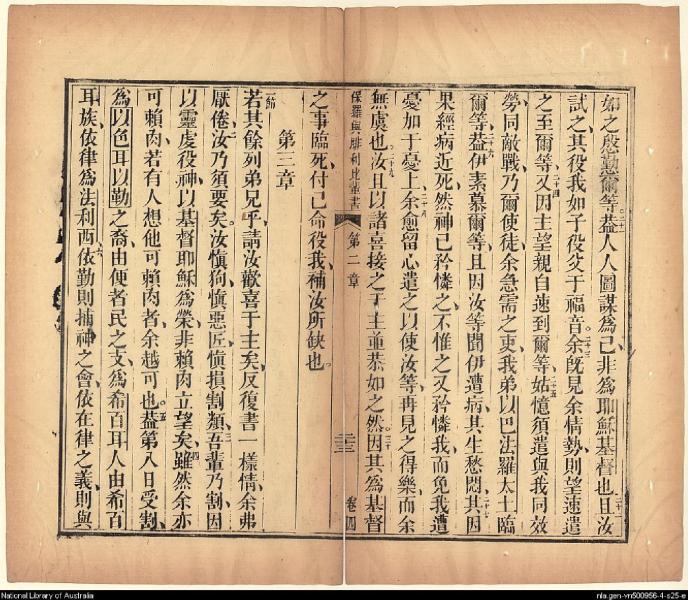 如之殷勤爾等。二十一蓋人人圖謀為己、非為耶穌基督也二十二且汝
試之其役我如子役父于福音。二十三余旣見余情勢、則望速遣
之至爾等、二十四又因主望親自速到爾等、二十五姑憶須遣與我同效
勞、同敵戰、乃爾使徒、余急需之吏、我弟以巴法羅太土臨
爾等、二十六益伊素慕爾等、且因汝等聞伊遭病、其生愁悶、二十七其因
果經病近死、然神已矜憐之、不惟之、又矜憐我、而免我遭
憂加于憂上、二十八余愈留心遣之、以使汝等、再見之得樂、而余
無虞也、二十九汝且以諸喜接之于主、重恭如之然、三十因其為基督
保羅與腓利比輩書 第二章 卷四
之事臨死、付己命役我、補汝所缺也。
第三章
一節若其餘列弟兄乎、請汝歡喜于主矣、反復書一樣情、余弗
厭倦、汝乃須要矣。二汝慎狗、慎惡匠、慎損割類、三吾輩乃割、因
以靈虔役神、以基督耶穌為榮、非賴肉立望矣、四雖然余亦
可賴肉、若有人想他可賴肉者、余越可也。五蓋第八日受割、
為以色耳以勤之裔、由便者民之支、為希百耳人由希百
耳族、依律為法利西、六依勤則捕神之會、依在律之義、則與
National Library of Australia
nla.gen-vn500956-4-s25-e